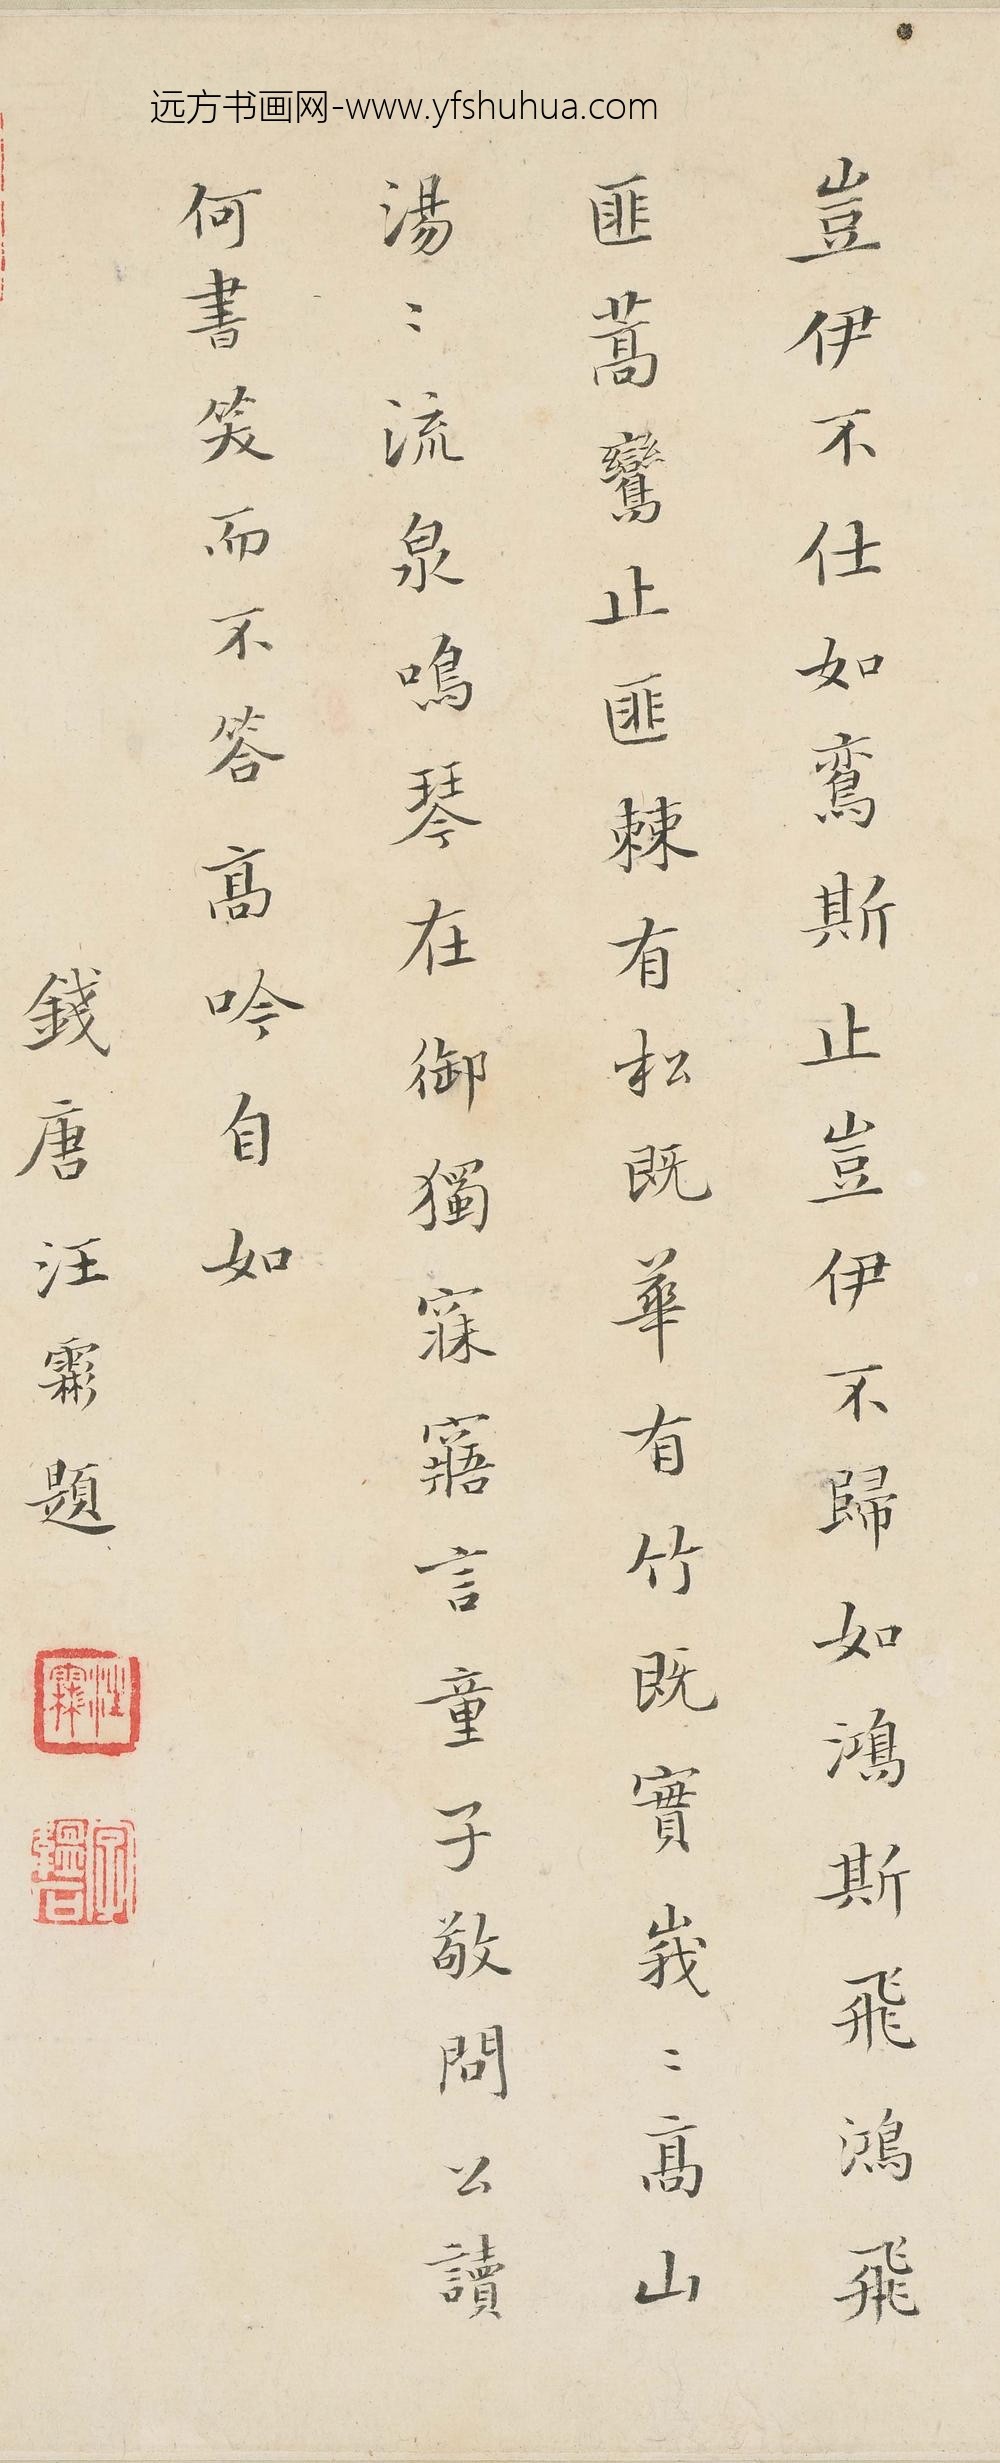 远方书画网-www.yfshuhua.com
豈伊不仕如鸾斯止豈伊不歸如鴻斯飛鴻飛
匪蒿鸞止匪棘有松既華有竹既實峩〻高山
湯〻流泉鳴琴在御獨寐寤言童子敬問公讀
何書笑而不答高吟自如
錢唐汪霦題
汪霦